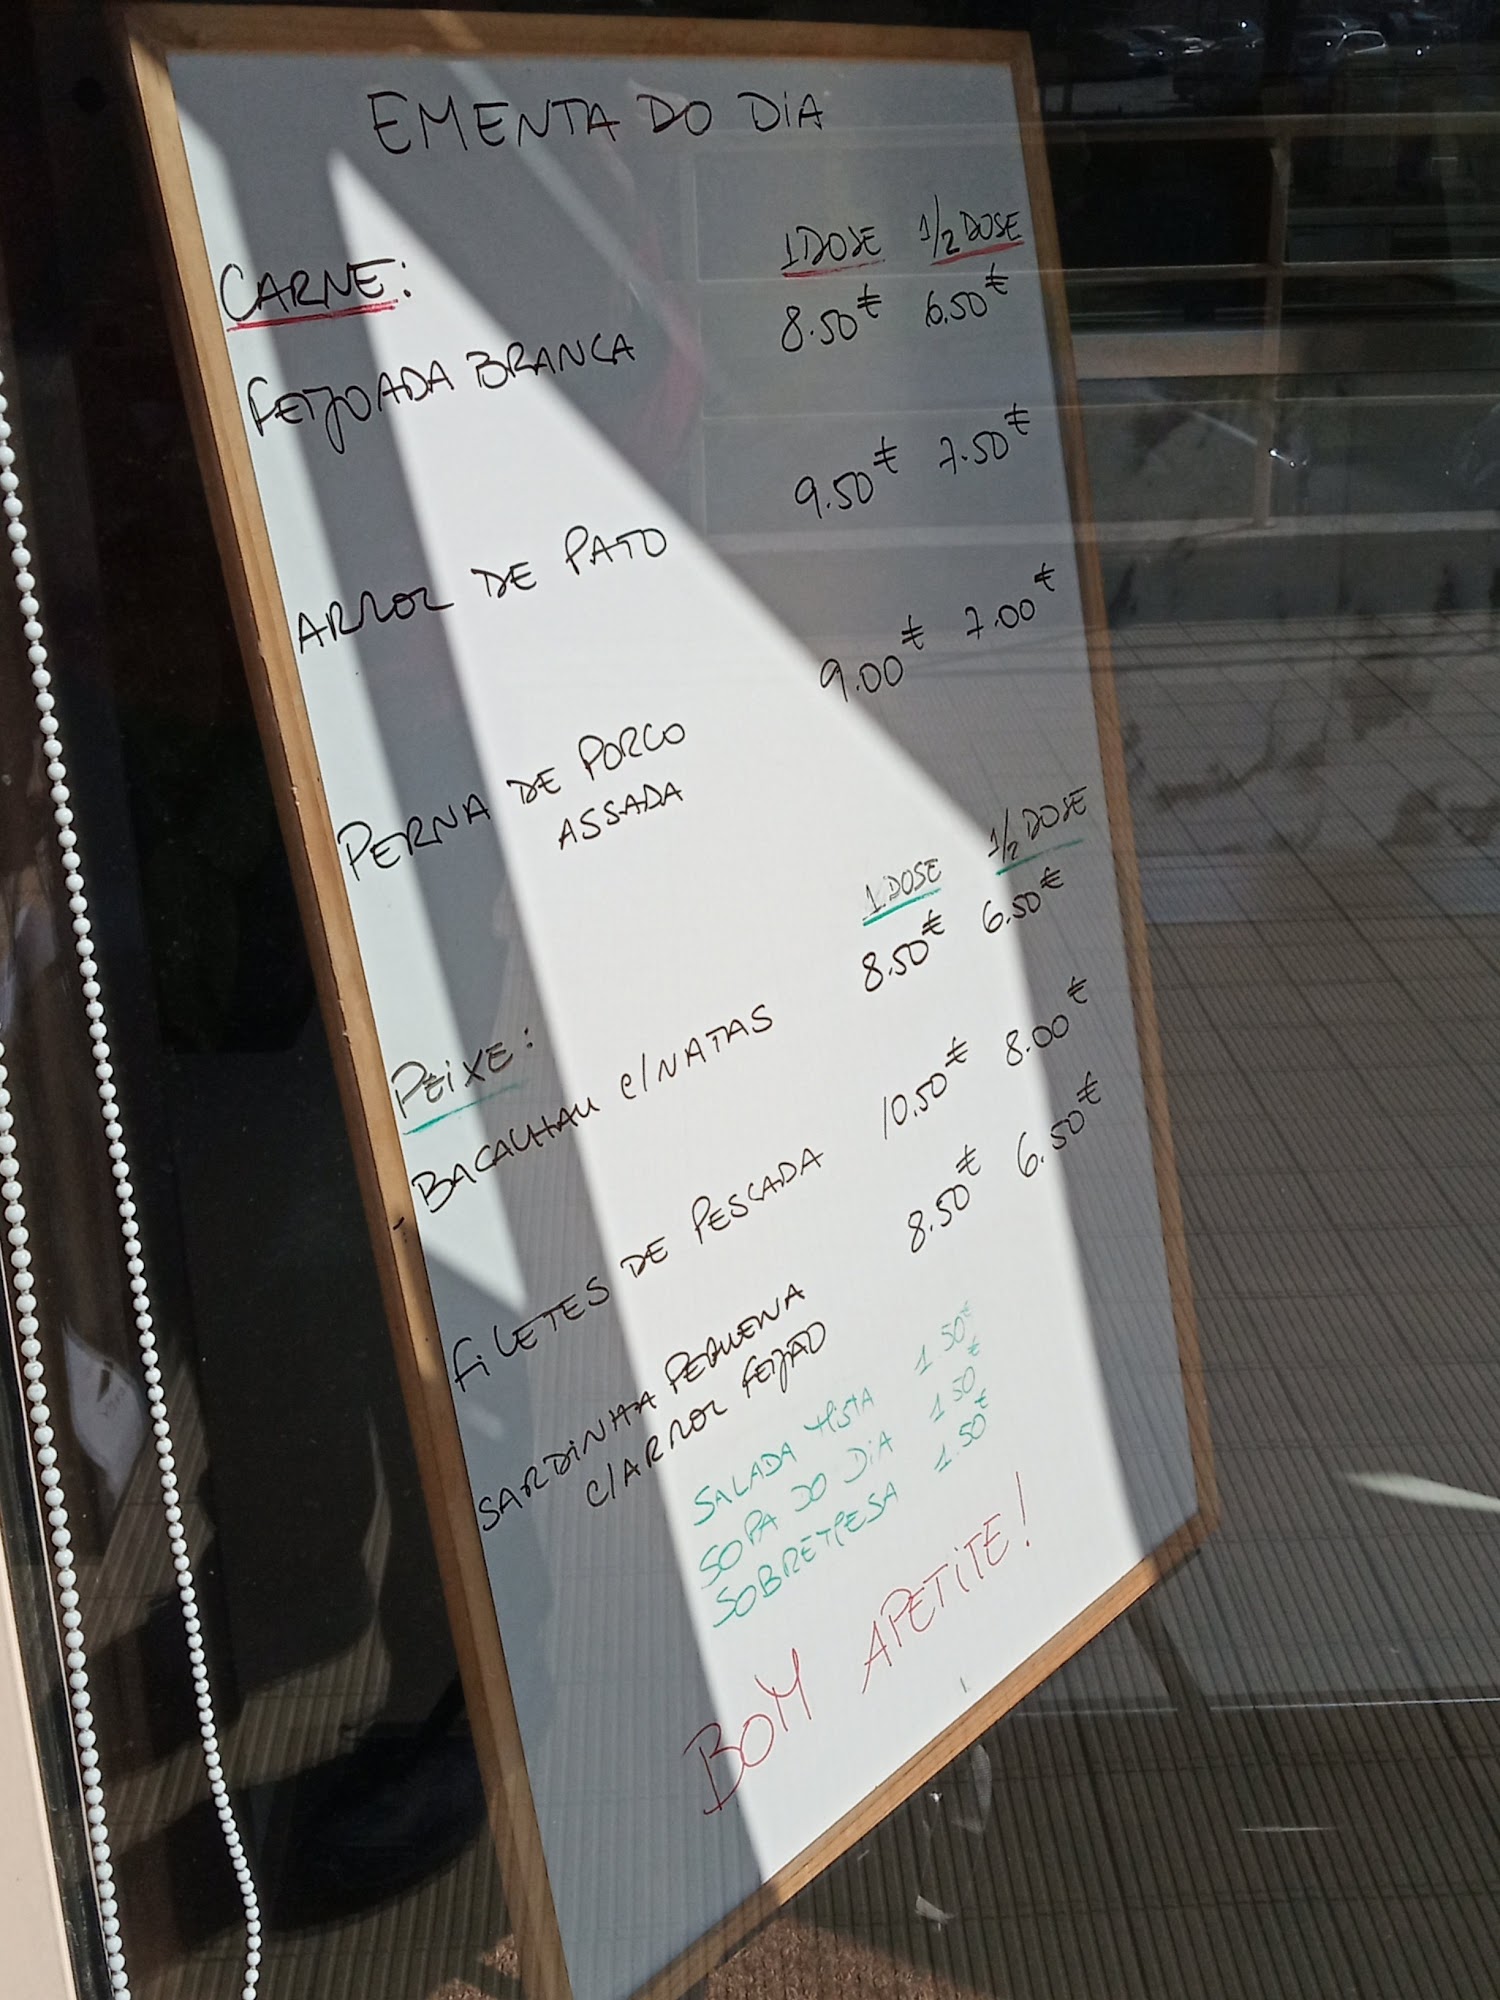 EMENTA DO DIA
CARNE: 1 DOSE 1/2 DOSE
FEIJOADA BRANCA 8.50€ 6.50€
ARROZ DE PATO 9.50€ 7.50€
PERNA DE PORCO 9.00€ 7.00€
ASSADA
PEIXE: 1 DOSE 1/2 DOSE
BACALHAU C/NATAS 8.50€ 6.50€
FILETES DE PESCADA 10.50€ 8.00€
SARDINHA PEQUENA 8.50€ 6.50€
C/ARROZ FEIJÃO
SALADA MISTA 1 50€
SOPA DO DIA 1 50€
SOBREMESA 1.50€
BOM APETITE!